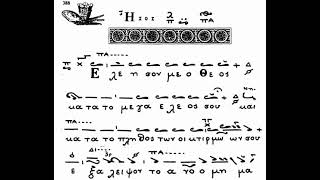 388
Ε λε η σον με ο Θε ος
κα τα το με γα ε λε ος σου και
κα τα το πλη θος των οι κτιρ μων σου
ε ξα λει ψον το α νο μη μα